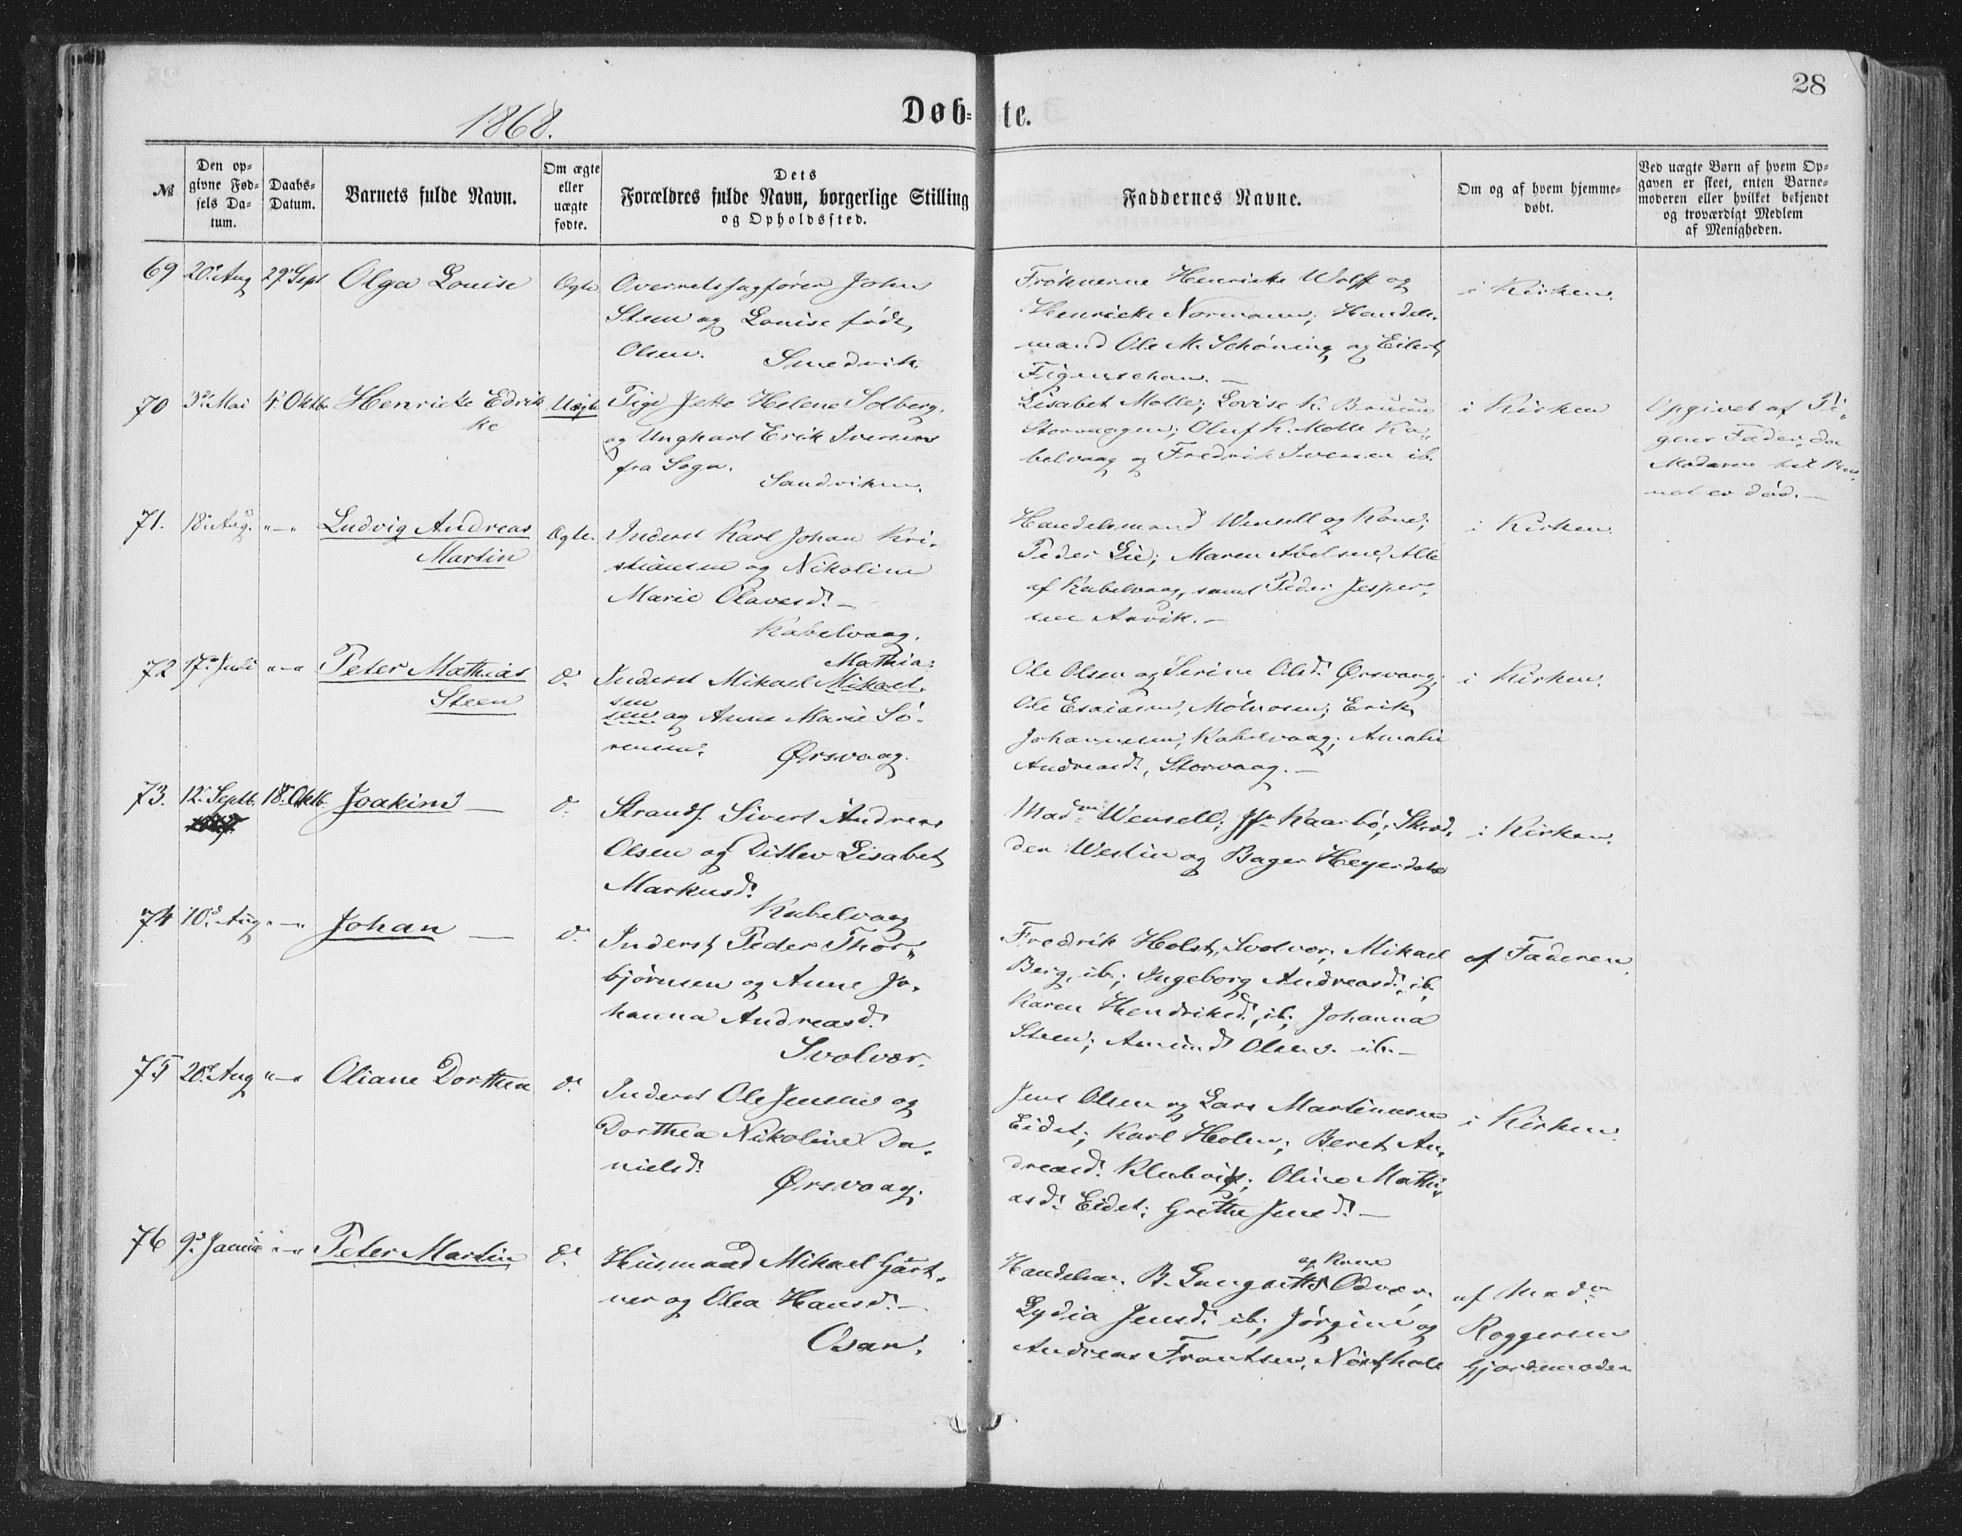 28
1868.
Døb=te.
№
Den op-
givne Fød-
sels Da-
tum.
Daabs-
Datum.
Barnets fulde Navn.
Om ægte
eller
uægte
fødte.
Dets
Forældres fulde Navn, borgerlige Stilling
og Opholdssted.
Faddernes Navne.
Om og af hvem hjemme-
døbt.
Ved uægte Børn af hvem Op-
gaven er skeet, enten Barne-
moderen eller hvilket bekjendt
og troværdigt Medlem
af Menigheden.
69 20 Aug 29 Sept Olga Louise Ægte
Overretssagfører John
Steen og Louise født
Olsen. Smedvik
Frøknerne Henrieke Wolff og
Henrieke Normann; Handels-
mand Ole M. Schøning og Eilert
Figenschau. —
i Kirken.
70 3 Mai 4 Oktbr Henrieke Edrik
ke
Uægte
Pige Jette Helene Solberg,
og Ungkarl Erik Iversen
fra Sogn.
Sandviken.
Lisabet Molle; Lovise K. Bruun
Storvaagen; Oluf K. Molle Ka-
belvaag og Fredrik Iversen ib.
i Kirken
Opgivet af Pi-
gens Fader, da
Moderen til Bar-
net er død. —
71. 18 Aug. " — " Ludvig Andreas
Martin
Ægte.
Inderst Karl Johan Kri-
stiansen og Nikoline
Marie Olavesd. —
Kabelvaag.
Handelsmand Wensell og Kone;
Peder Lie; Maren Abelsen, Alle
af Kabelvaag, samt Peder Jesper-
sen
i Kirken.
72 17 Juli " — " Peter Mathias
Steen
d.
Mathia-
Inderst Mikael Mikael-
sen
sen og Anne Marie Sø-
rensen.
Ørsvaag.
Ole Olsen og Serine Olsd. Ørsvaag;
Ole Esaiasen, Molnosen; Erik
Johannesen, Kabelvaag; Amalie
Andreasd., Storvaag. —
i Kirken.
73. 12 Septb. 18 Oktb. Joakim —
d.
Strands. Sivert Andreas
Olsen og Ditlev Lisabet
Markusd.
Kabelvaag
Madm Wensell; Jfr Kaarbø; Skræd-
der Westin og Bager Heyerdahl
i Kirken.
74 10 Aug " — " Johan —
d.
Inderst Peder Thor-
bjørnsen og Anne Jo-
hanna Andreasd.
Svolvær.
Fredrik Holst, Svolvær; Mikael
Berg, ib.; Ingeborg Andreasd., ib;
Karen Hendriksd., ib; Johanna
Steen; Amund Olsen. ib. —
af Faderen.
75 20 Aug " — " Oliane Dorthea
d.
Inderst Ole Jensen og
Dorthea Nikoline Da-
nielsd.
Ørsvaag.
Jens Olsen og Lars Martinussen
Eidet; Karl Holm; Beret An-
dreasd. Oline Mathi-
asd. Eidet; Grethe Jensd. —
i Kirken.
76 9 " — " Peter Martin
d.
Husmand Mikael Gart-
ner og Olea Hansd. —
Osan.
og Kone
Handelsm. B.
Lydia Jensd. ib; Jørgine og
Andreas Frantsen,
af Madm
Roggersen
Gjordemoder